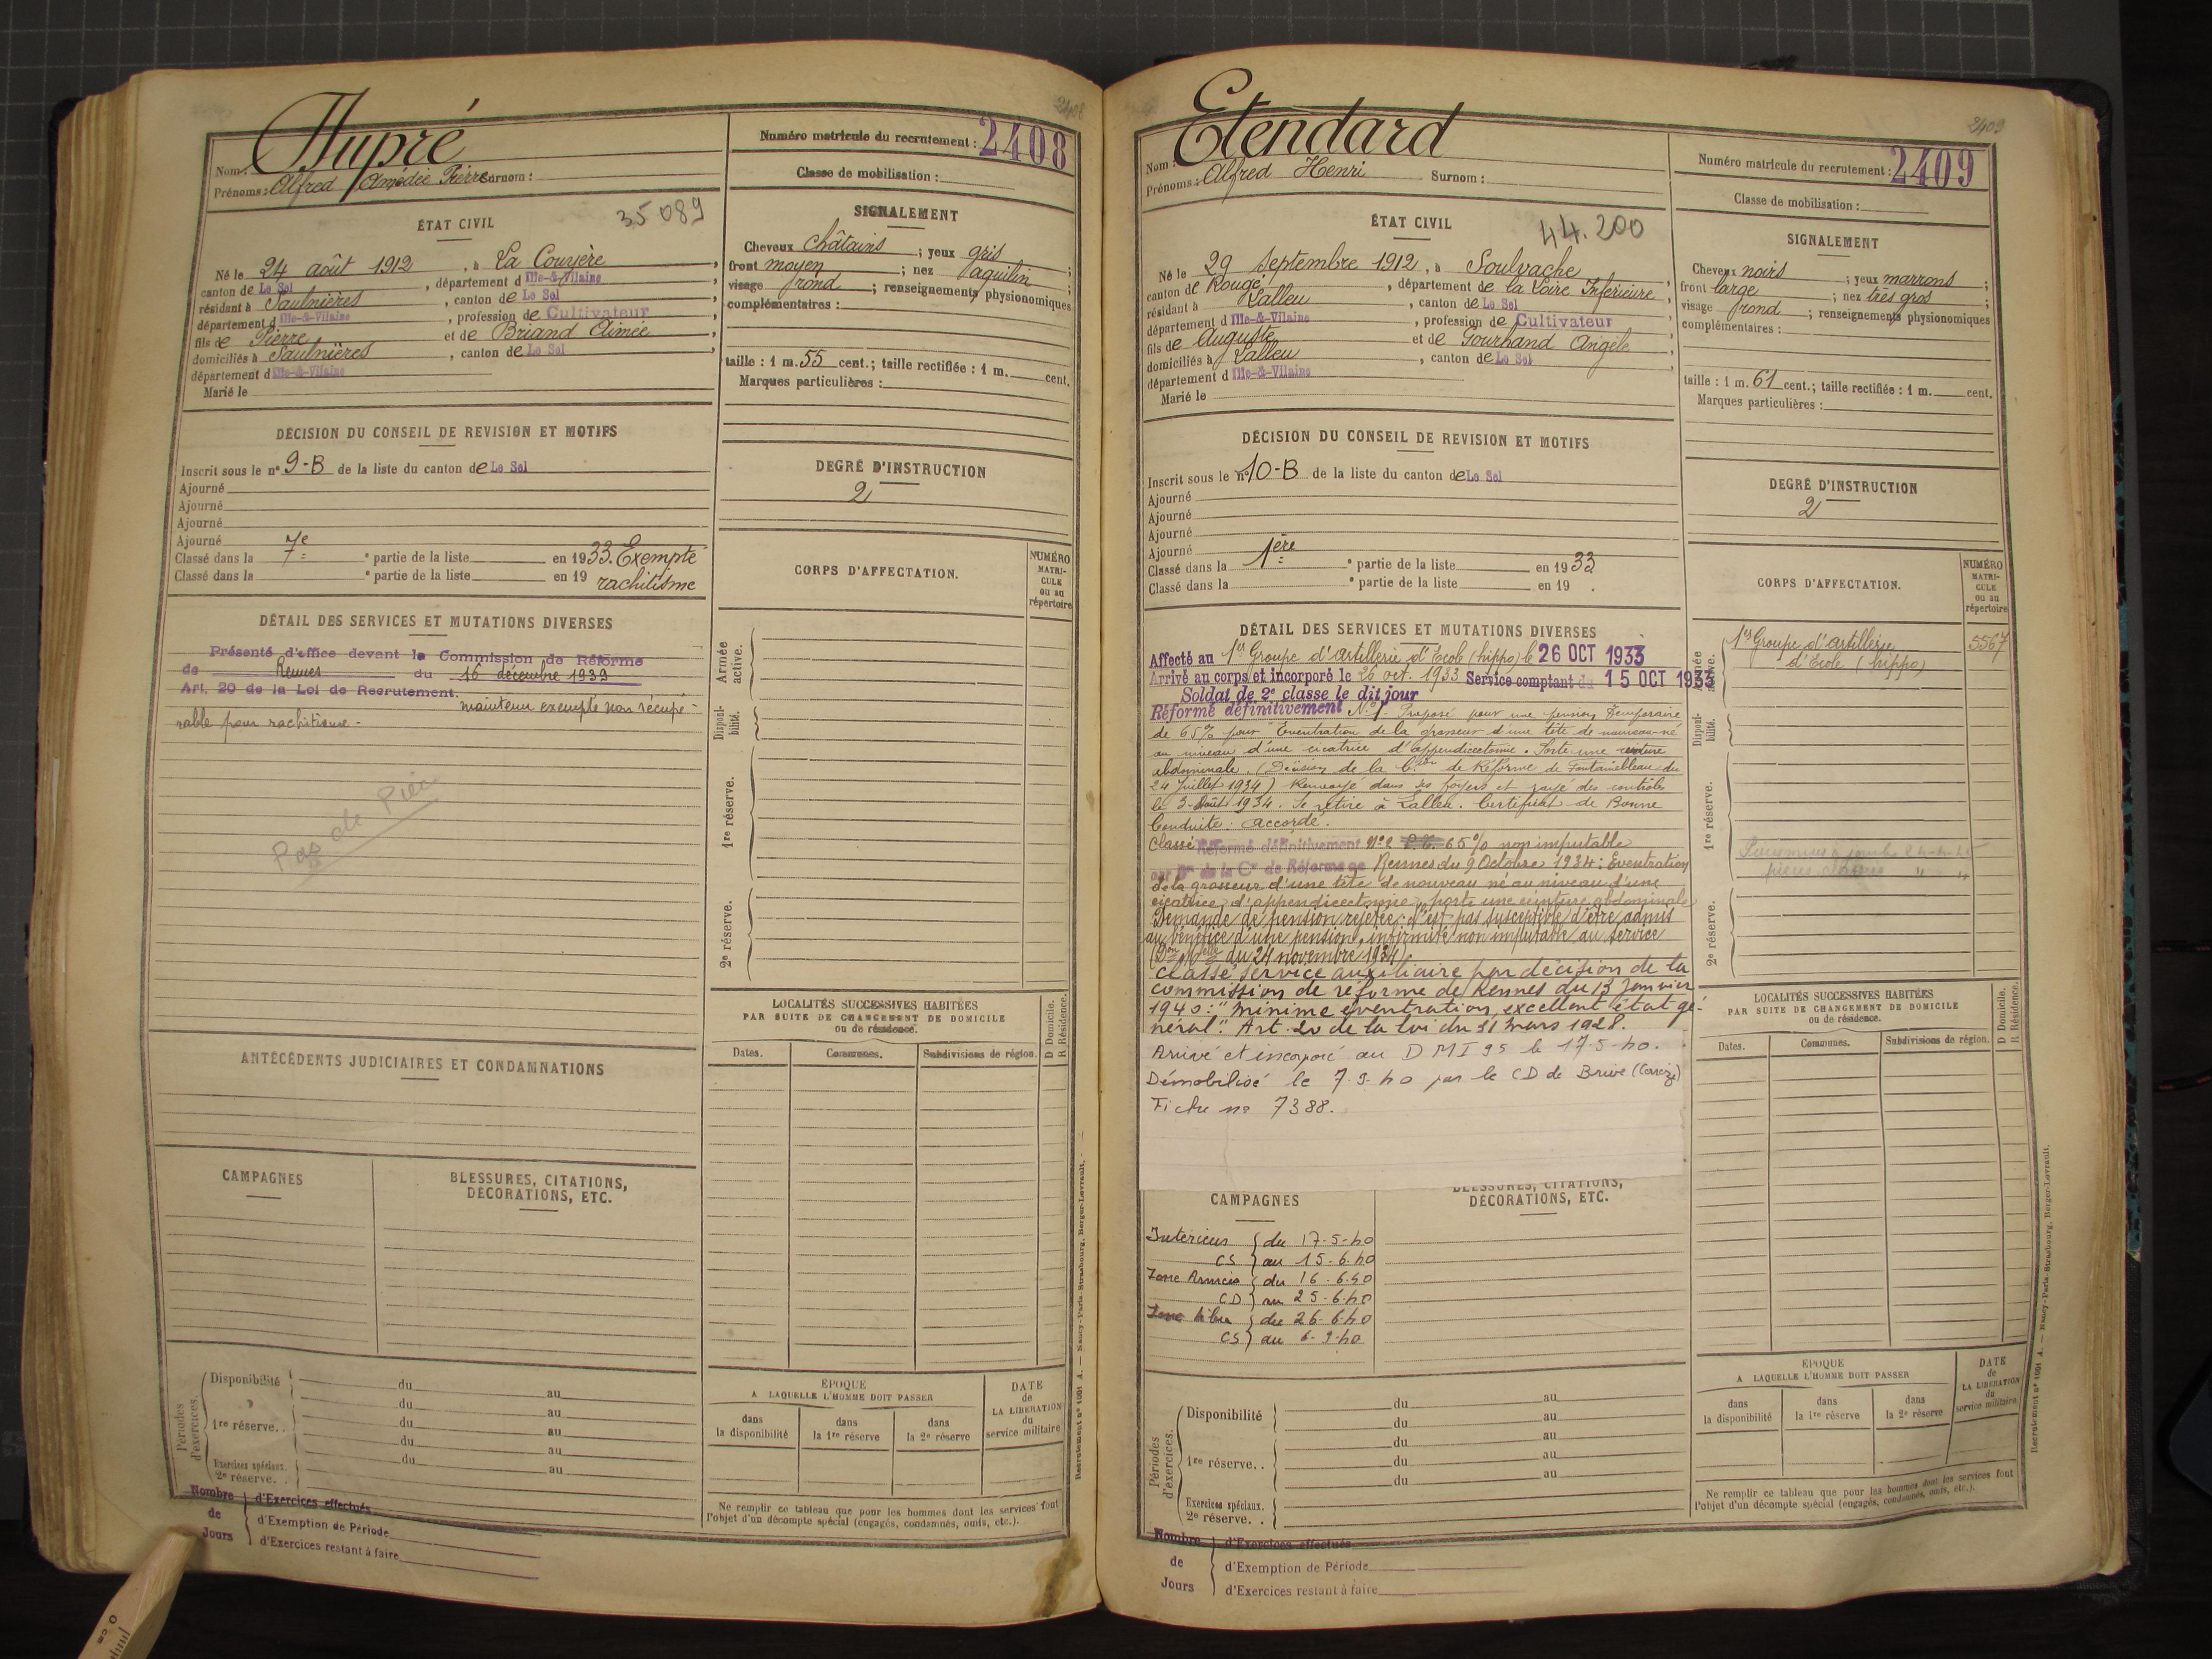 2408
Hupré
Nom :
Prénoms : Alfred Amédée Pierre Surnom :
Numéro matricule du recrutement : 2408
Classe de mobilisation :
ÉTAT CIVIL
35 089
Né le 24 août 1912, à La Couyère,
canton de Le Sel, département d Ille-&-Vilaine
résidant à Saulnières, canton de Le Sel,
département d Ille-&-Vilaine, profession de Cultivateur,
fils de Pierre et de Briand Aimée
domiciliés à Saulnières, canton de Le Sel,
département d Ille-&-Vilaine
Marié le
SIGNALEMENT
Cheveux châtains ; yeux gris ;
front moyen ; nez aquilin ;
visage rond ; renseignements physionomiques
complémentaires :
taille : 1 m. 55 cent.; taille rectifiée : 1 m. cent.
Marques particulières :
DÉCISION DU CONSEIL DE REVISION ET MOTIFS
Inscrit sous le n° 9-B de la liste du canton de Le Sel
Ajourné
Ajourné
Ajourné
Ajourné
Classé dans la 7e e partie de la liste en 1933. Exempté
Classé dans la e partie de la liste en 19 rachitisme
DEGRÉ D'INSTRUCTION
2
CORPS D'AFFECTATION.
NUMÉRO
MATRI-
CULE
ou au
répertoire
DÉTAIL DES SERVICES ET MUTATIONS DIVERSES
Présenté d'office devant la Commission de Réforme
de Rennes du 16 décembre 1939
Art. 20 de la Loi de Recrutement. maintenu exempté non récupé-
rable pour rachitisme -
Pas de Pièce
Armée
active.
Disponi-
bilité.
1re réserve.
2e réserve.
LOCALITÉS SUCCESSIVES HABITÉES
PAR SUITE DE CHANGEMENT DE DOMICILE
ou de résidence.
D Domicile.
R Résidence.
Dates.
Communes.
Subdivisions de région.
ANTÉCÉDENTS JUDICIAIRES ET CONDAMNATIONS
CAMPAGNES
BLESSURES, CITATIONS,
DÉCORATIONS, ETC.
Périodes
d'exercices.
Disponibilité du au
du au
1re réserve. . du au
du au
Exercices spéciaux. du au
2e réserve. . au
ÉPOQUE
A LAQUELLE L'HOMME DOIT PASSER
dans
la disponibilité
dans
la 1re réserve
dans
la 2e réserve
DATE
de
LA LIBÉRATION
du
service militaire
Ne remplir ce tableau que pour les hommes dont les services font
l'objet d'un décompte spécial (engagés, condamnés, omis, etc.).
Nombre d'Exercices effectués
de d'Exemption de Période
Jours d'Exercices restant à faire
Recrutement n° 1001 A. — Nancy-Paris-Strasbourg, Berger-Levrault.
2409
Etendard
Nom :
Prénoms : Alfred Henri Surnom :
Numéro matricule du recrutement : 2409
Classe de mobilisation :
ÉTAT CIVIL
44.200
Né le 29 Septembre 1912, à Soulvache
canton de Rougé, département de la Loire Inférieure,
résidant à Lalleu, canton de Le Sel,
département d Ille-&-Vilaine, profession de Cultivateur
fils de Auguste et de Gourhand Angèle
domiciliés à Lalleu, canton de Le Sel,
département d Ille-&-Vilaine
Marié le
SIGNALEMENT
Cheveux noirs ; yeux marrons ;
front large ; nez très gros ;
visage rond ; renseignements physionomiques
complémentaires :
taille : 1 m. 61 cent.; taille rectifiée : 1 m. cent.
Marques particulières :
DÉCISION DU CONSEIL DE REVISION ET MOTIFS
Inscrit sous le n° 10-B de la liste du canton de Le Sel
Ajourné
Ajourné
Ajourné
Ajourné
Classé dans la 1ère e partie de la liste en 1933
Classé dans la e partie de la liste en 19 .
DEGRÉ D'INSTRUCTION
2
CORPS D'AFFECTATION.
NUMÉRO
MATRI-
CULE
ou au
répertoire
1er Groupe d'artillerie 5567
d'Ecole (hippo)
DÉTAIL DES SERVICES ET MUTATIONS DIVERSES
Affecté au 1er Groupe d'artillerie d'Ecole (hippo) le 26 OCT 1933
Arrivé au corps et incorporé le 26 oct. 1933 Service comptant du 15 OCT 1933
Soldat de 2e classe le dit jour
Réformé définitivement N° 1. Proposé pour une pension temporaire
de 65% pour "Eventration de la grosseur d'une tête de nouveau-né
au niveau d'une cicatrice d'appendicectomie. Porte une ceinture
abdominale. (Décision de la Cion de Réforme de Fontainebleau du
24 Juillet 1934) Renvoyé dans ses foyers et rayé des contrôles
le 3 Août 1934. Se retire à Lalleu. Certificat de Bonne
Conduite : accordé.
Classé Réformé définitivement n° 2 65% non imputable
par Don de la Cn de Réforme de Rennes du 9 Octobre 1934 : Eventration
de la grosseur d'une tête de nouveau né au niveau d'une
cicatrice d'appendicectomie, porte une ceinture abdominale
Demande de pension rejetée : N'est pas susceptible d'être admis
au bénéfice d'une pension, infirmité non imputable au service
(Don Melle du 24 novembre 1934)
Classé service auxiliaire par décision de la
commission de réforme de Rennes du 13 Janvier
1940 : "minime éventration, excellent état gé-
néral". Art. 20 de la loi du 31 mars 1928.
Arrivé et incorporé au D M I 95 le 17-5-40.
Démobilisé le 7-9-40 par le CD de Brive (Corrèze)
Fiche n° 7388.
Armée
active.
Disponi-
bilité.
1re réserve.
2e réserve.
LOCALITÉS SUCCESSIVES HABITÉES
PAR SUITE DE CHANGEMENT DE DOMICILE
ou de résidence.
D Domicile.
R Résidence.
Dates.
Communes.
Subdivisions de région.
CAMPAGNES
BLESSURES, CITATIONS,
DÉCORATIONS, ETC.
Intérieur du 17-5-40
CS au 15-6-40
Zone Armées du 16-6-40
CD au 25-6-40
Zone libre du 26-6-40
CS au 6-9-40
Périodes
d'exercices.
Disponibilité du au
du au
1re réserve. . du au
du au
du au
Exercices spéciaux.
2e réserve. .
ÉPOQUE
A LAQUELLE L'HOMME DOIT PASSER
dans
la disponibilité
dans
la 1re réserve
dans
la 2e réserve
DATE
de
LA LIBÉRATION
du
service militaire
Ne remplir ce tableau que pour les hommes dont les services font
l'objet d'un décompte spécial (engagés, condamnés, omis, etc.).
Nombre d'Exercices effectués
de d'Exemption de Période
Jours d'Exercices restant à faire
Recrutement n° 1001 A. — Nancy-Paris-Strasbourg, Berger-Levrault.
0
cm